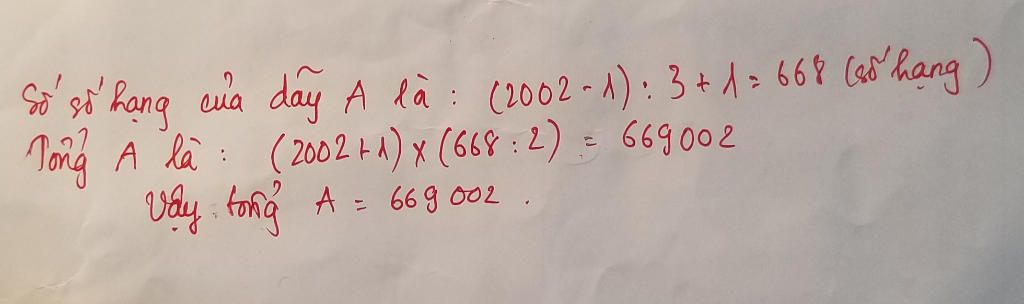 Số số hạng của dãy A là : (2002 - 1) : 3 + 1 = 668 (số hạng)
Tổng A là : (2002 + 1) x (668 : 2) = 669002
Vậy tổng A = 669 002 .